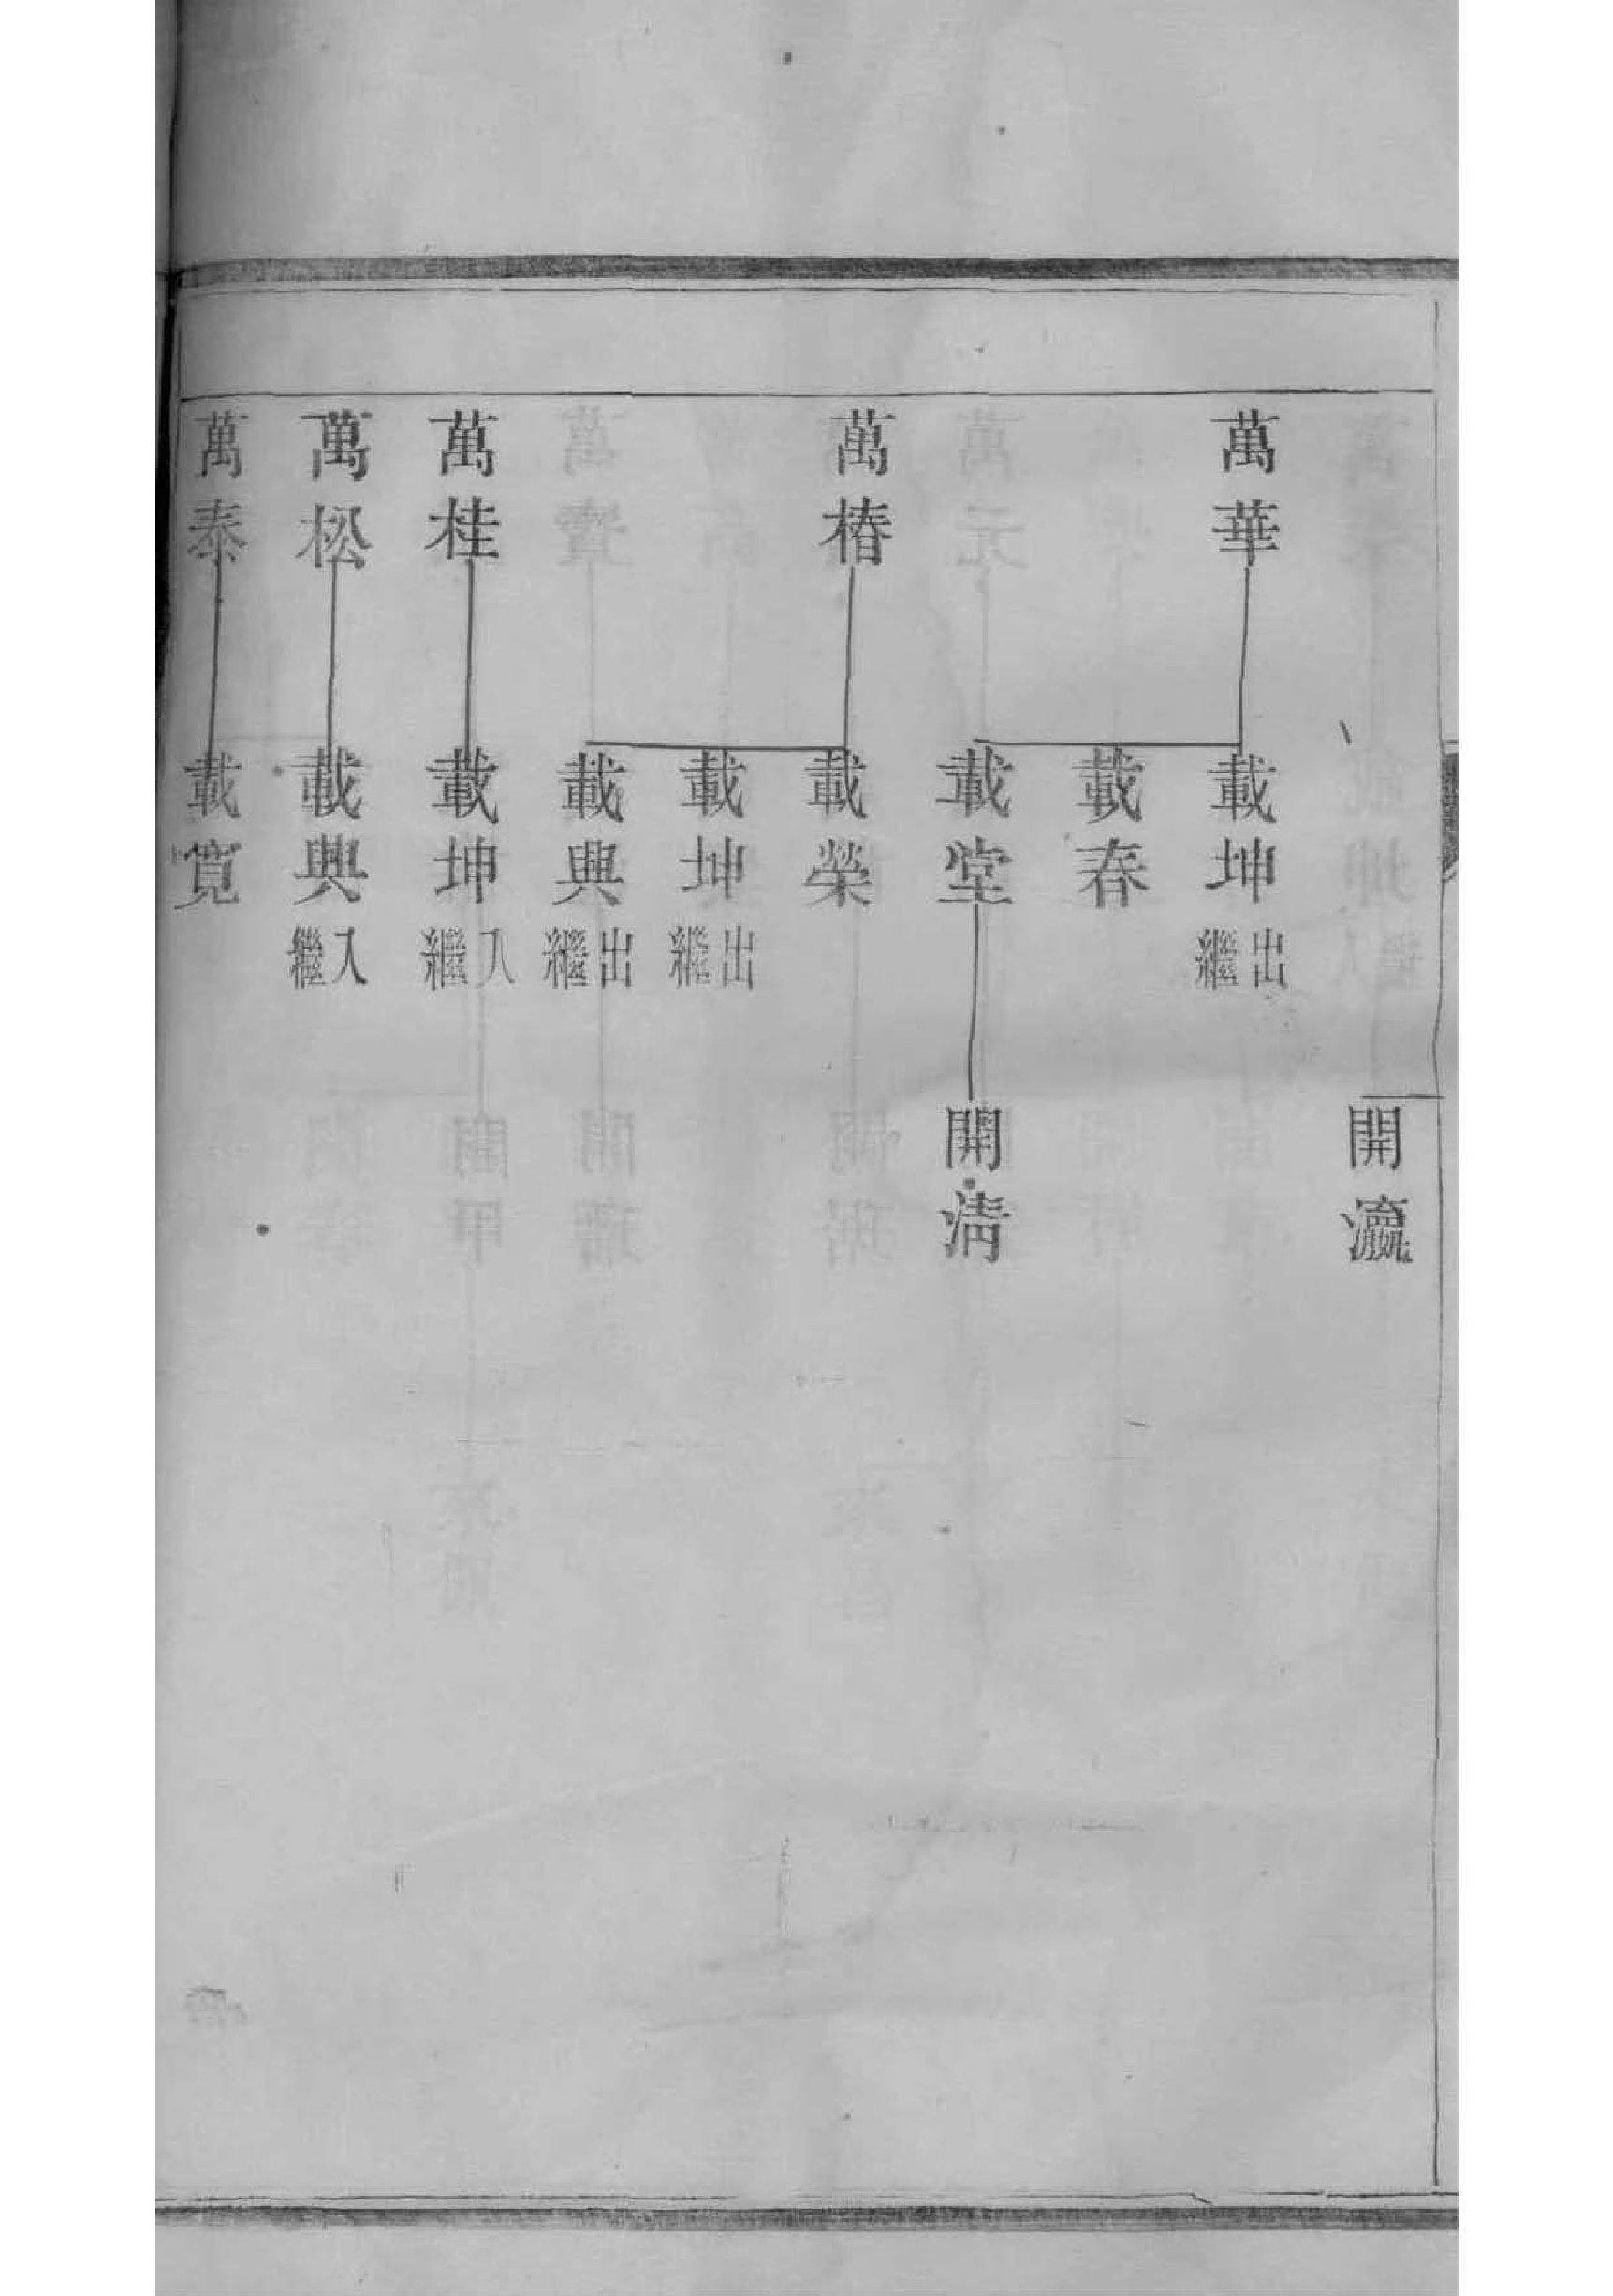 開瀛
萬華
載坤出繼
載春
載堂
開淸
萬椿
載榮
載坤出繼
載興出繼
萬桂
載坤入繼
萬松
載興入繼
萬泰
載寬